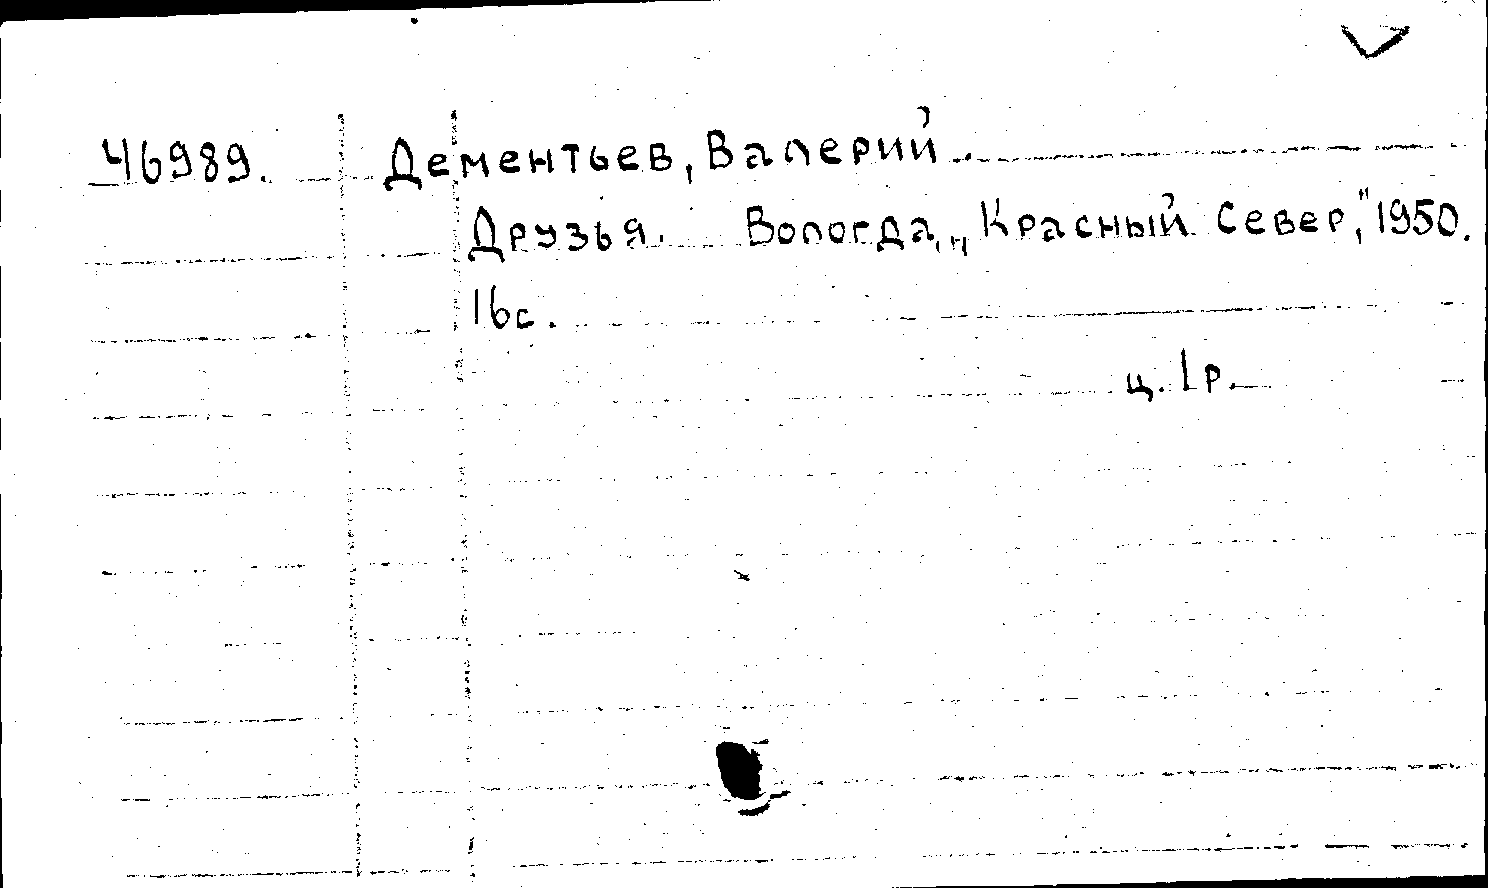 46989. Дементьев, Валерий.
Друзья. Вологда, „Красный Север," 1950.
16с.
ц. 1р.